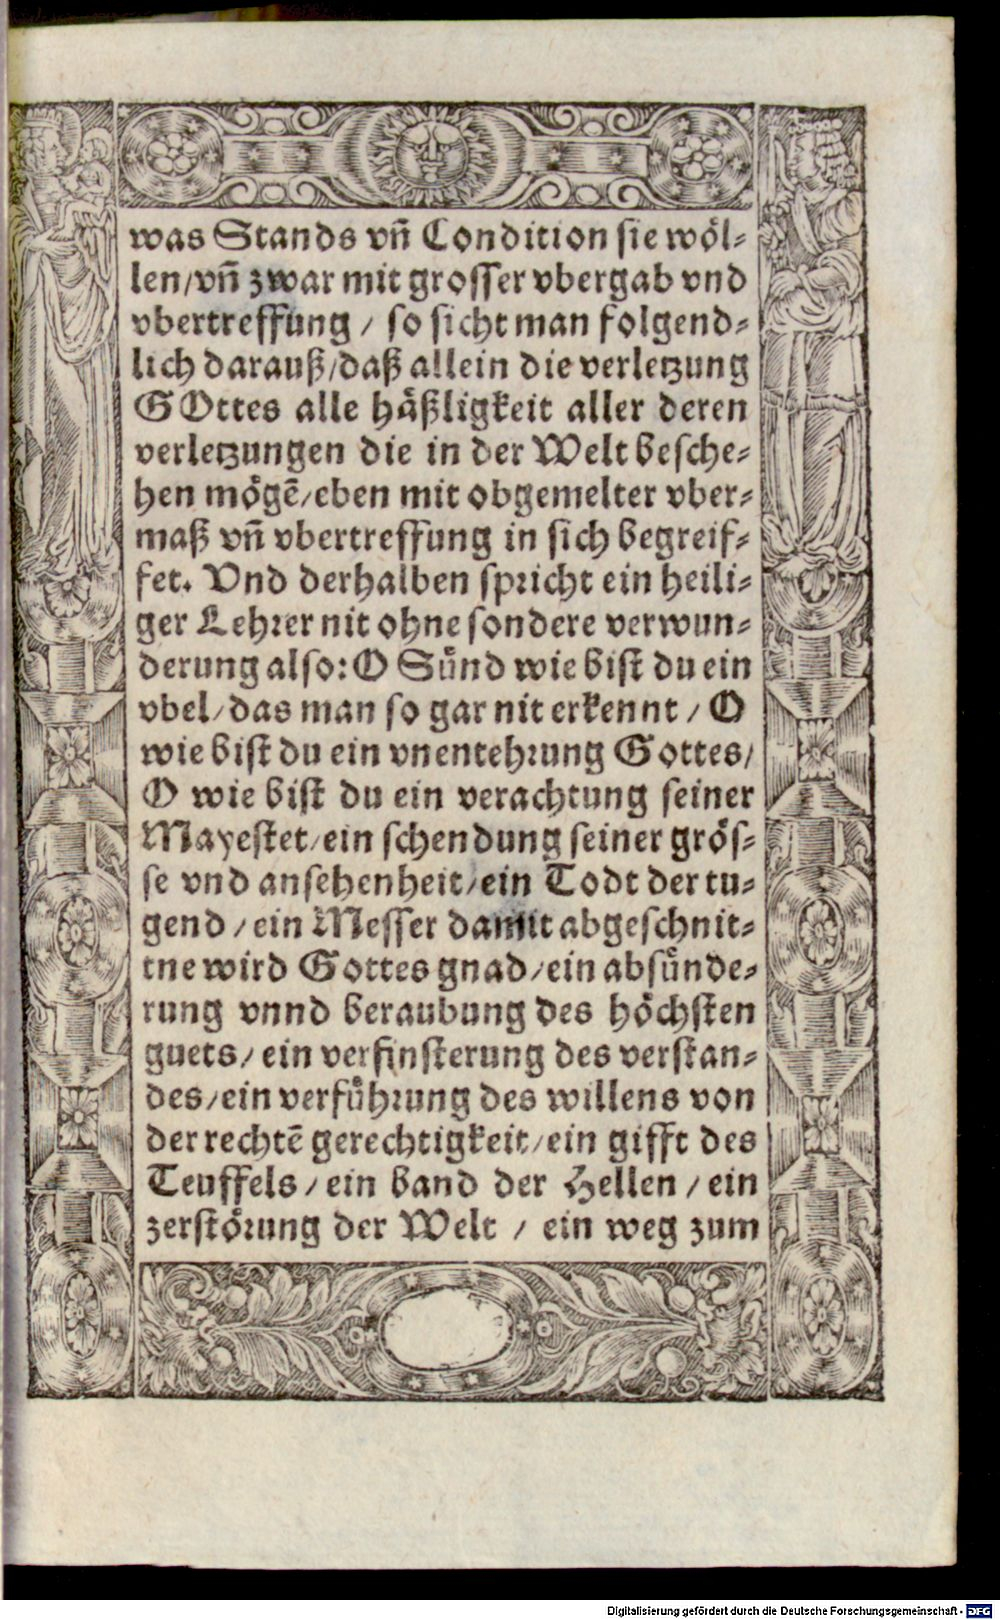 was Stands vn̄ Condition sie wöl⸗
len/vn̄ zwar mit grosser vbergab vnd
vbertreffung / so sicht man folgend⸗
lich darauß/daß allein die verletzung
GOttes alle häßligkeit aller deren
verletzungen die in der Welt besche⸗
hen mögē/eben mit obgemelter vber⸗
maß vn̄ vbertreffung in sich begreif⸗
fet. Vnd derhalben spricht ein heili⸗
ger Lehrer nit ohne sondere verwun⸗
derung also: O Sünd wie bist du ein
vbel/das man so gar nit erkennt / O
wie bist du ein vnentehrung Gottes/
O wie bist du ein verachtung seiner
Mayestet/ein schendung seiner grös⸗
se vnd ansehenheit/ein Todt der tu⸗
gend / ein Messer damit abgeschnit⸗
tne wird Gottes gnad/ein absünde⸗
rung vnnd beraubung des höchsten
guets/ ein verfinsterung des verstan⸗
des/ein verführung des willens von
der rechtē gerechtigkeit/ein gifft des
Teuffels / ein band der Hellen / ein
zerstörung der Welt / ein weg zum
Digitalisierung gefördert durch die Deutsche Forschungsgemeinschaft - DFG